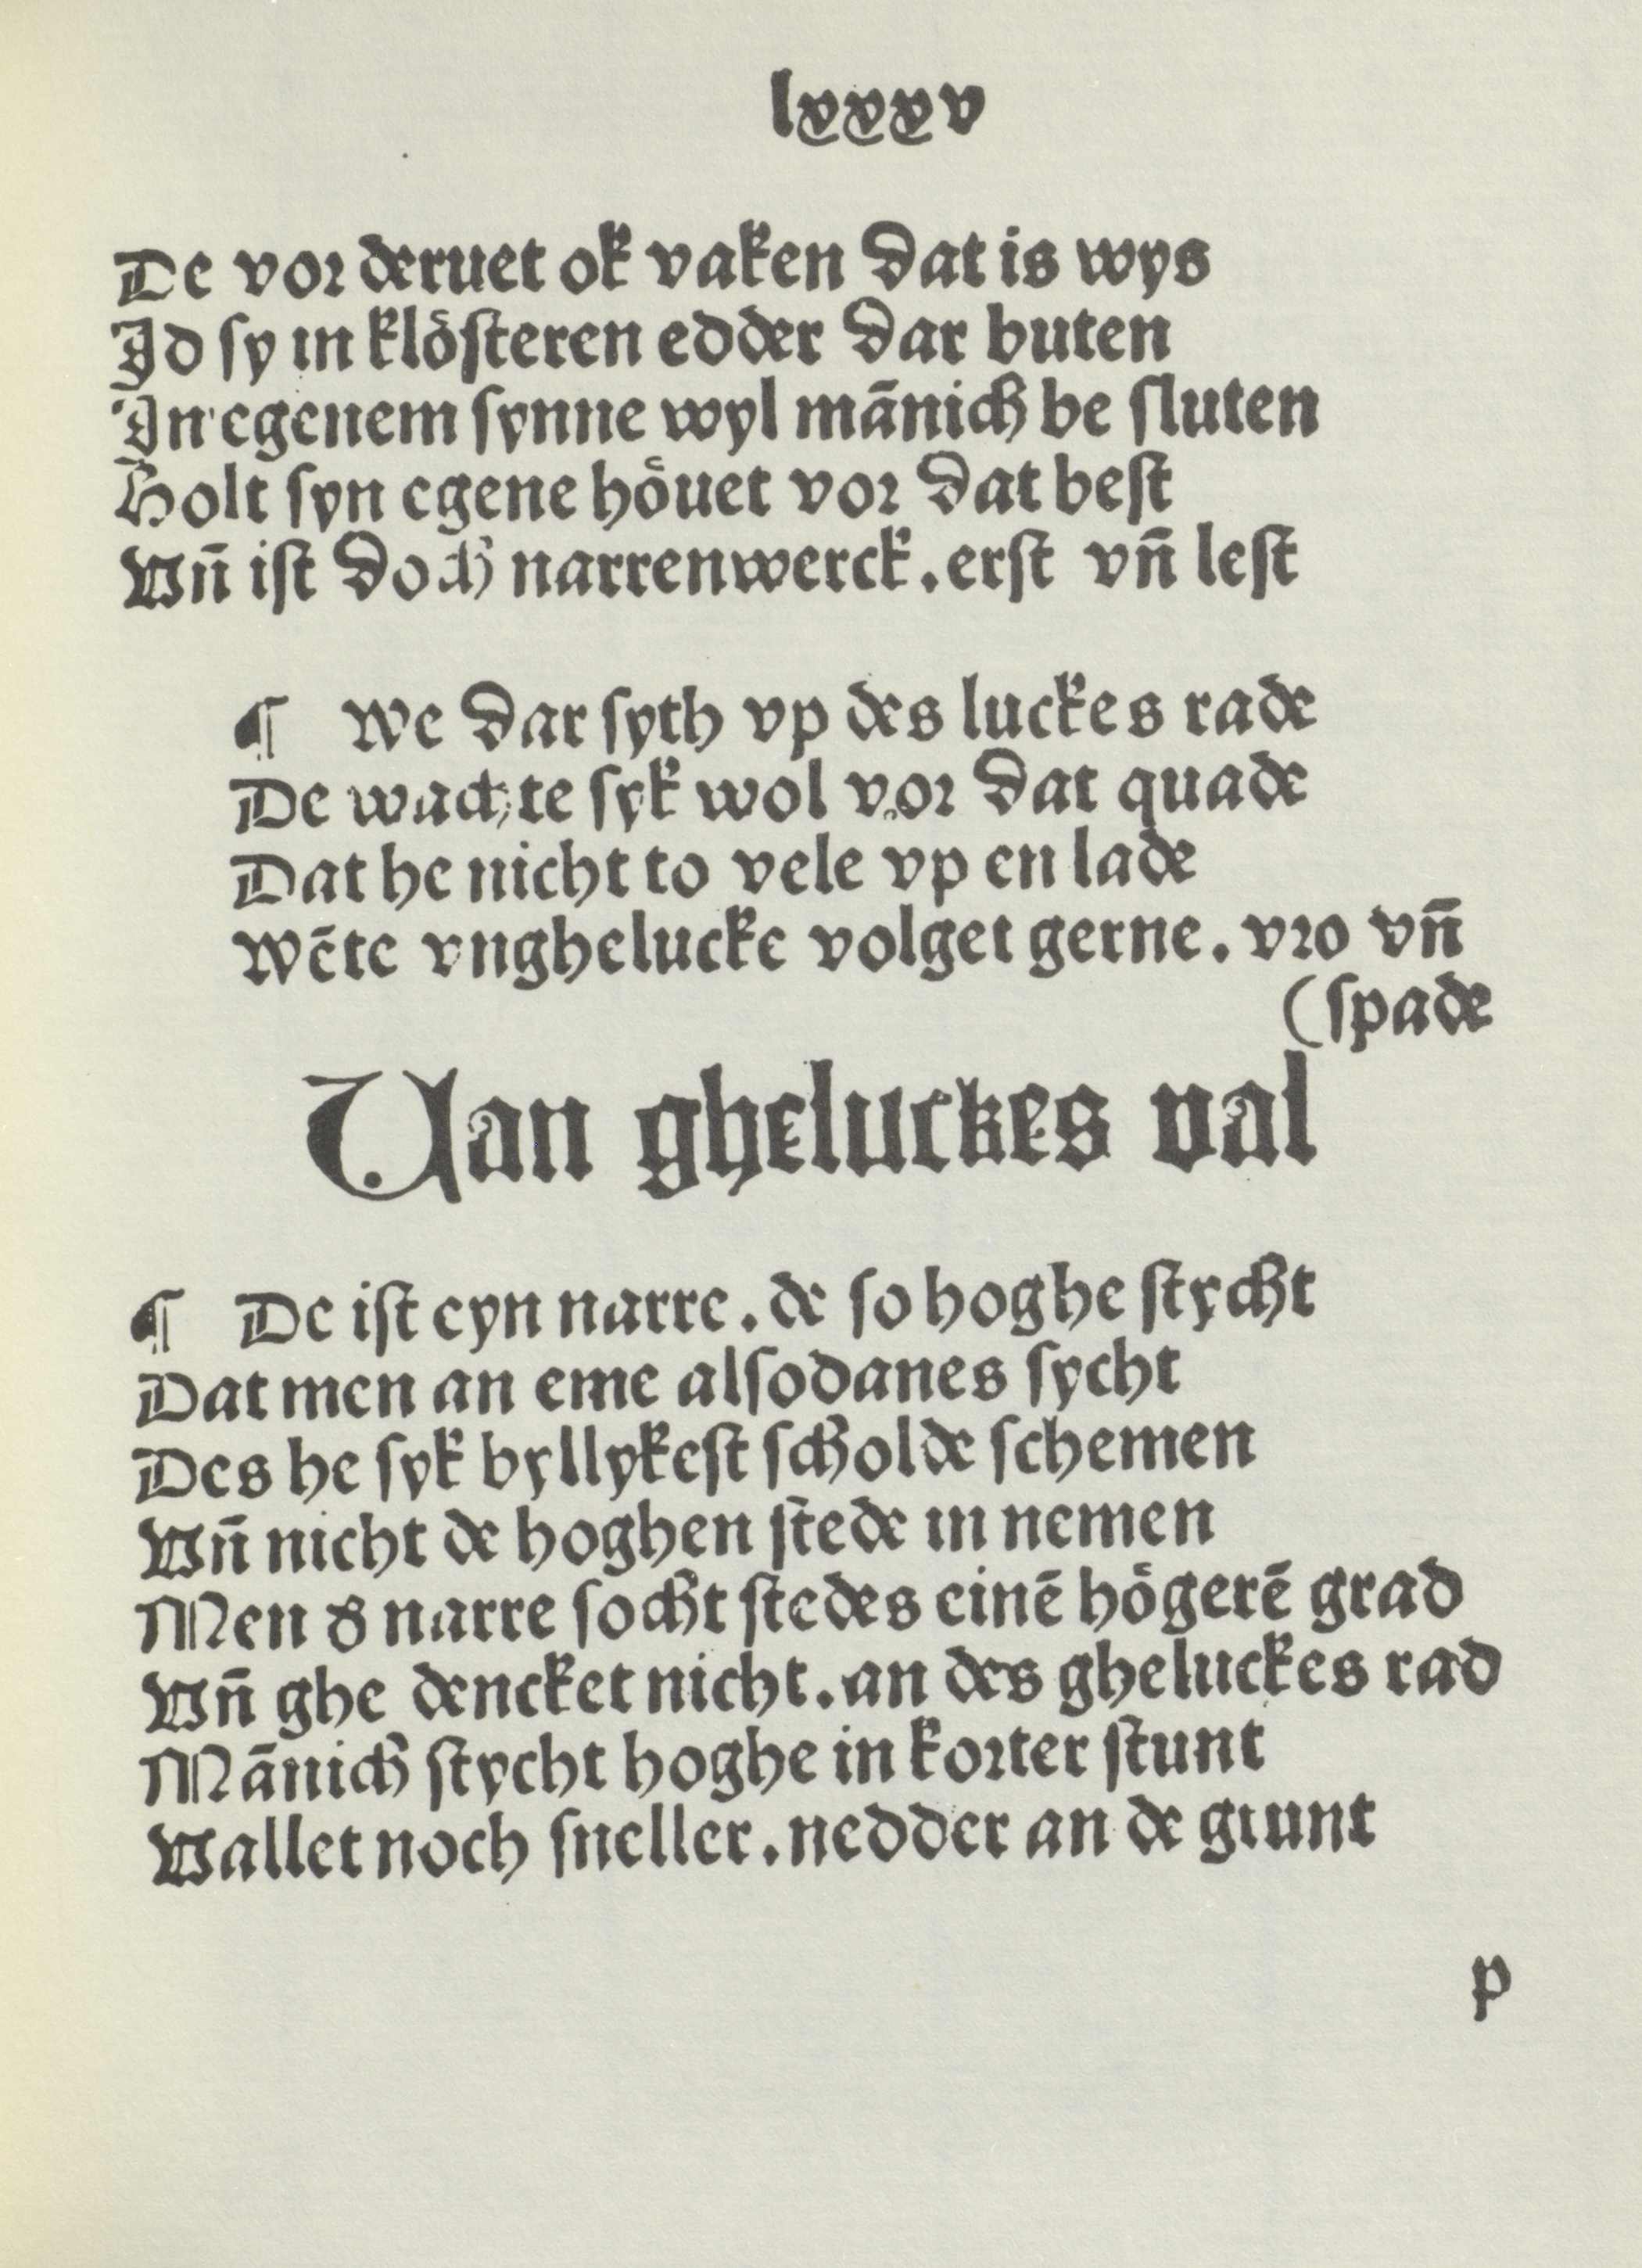 lxxxv
De vor deruet ok vaken dat is wys
Id sy in klöſteren edder dar buten
In egenem ſynne wyl mānich be ſluten
Holt ſyn egene höuet vor dat beſt
Vn̄ iſt doch narrenwerck. erſt vn̄ leſt
¶ We dar ſyth vp des luckes rade
De wachte ſyk wol vor dat quade
Dat he nicht to vele vp en lade
Wēte vnghelucke volget gerne. vro vn̄
(ſpade
Uan gheluckes val
¶ De iſt eyn narre. de ſo hoghe ſtycht
Dat men an eme alſodanes ſycht
Des he ſyk byllykeſt ſcholde ſchemen
Vn̄ nicht de hoghen ſtede in nemen
Men d' narre ſocht ſtedes einē högerē grad
Vn̄ ghe dencket nicht. an des gheluckes rad
Mānich ſtycht hoghe in korter ſtunt
Vallet noch ſneller. nedder an de grunt
p